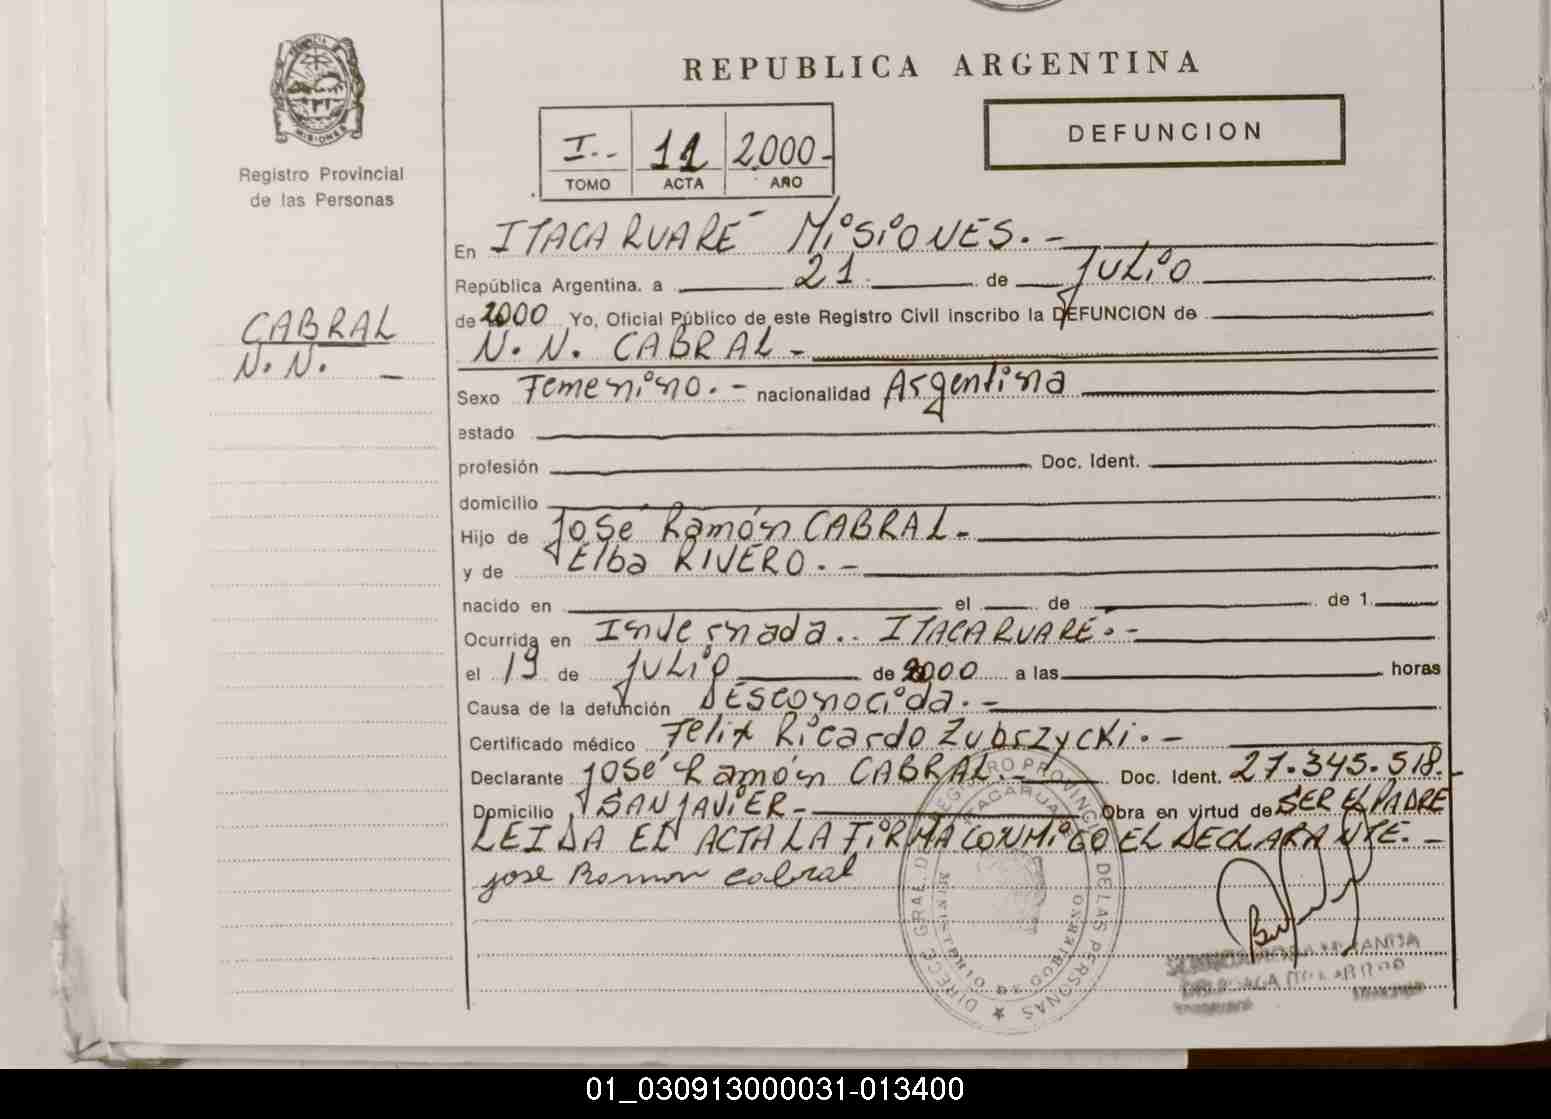 MISIONES
Registro Provincial
de las Personas
CABRAL
N. N. _
REPUBLICA ARGENTINA
I.. 11 2000-
TOMO ACTA AÑO
DEFUNCION
En ITACARUARÉ MISIONES. -
República Argentina. a 21 de JULIO
de 2000 Yo, Oficial Público de este Registro Civil inscribo la DEFUNCION de
N. N. CABRAL -
Sexo Femenino. - nacionalidad Argentina
estado
profesión Doc. Ident.
domicilio
Hijo de José Ramón CABRAL -
y de Elba RIVERO. -
nacido en el de de 1
Ocurrida en Invernada.. ITACARUARÉ. -
el 19 de JULIO de 2000 a las horas
Causa de la defunción DEsconocida. -
Certificado médico Felix Ricardo Zubrzycki. -
Declarante José Ramón CABRAL. - Doc. Ident. 27.345.518.-
Domicilio SAN JAVIER - Obra en virtud de SER EL PADRE
LEIDA EL ACTA LA FIRMA CONMIGO EL DECLARANTE. -
jose Ramon cabral
DIRECC. GRAL. DEL REGISTRO PROVINCIAL DE LAS PERSONAS
ITACARUARE
MINISTERIO DE GOBIERNO
01_030913000031-013400